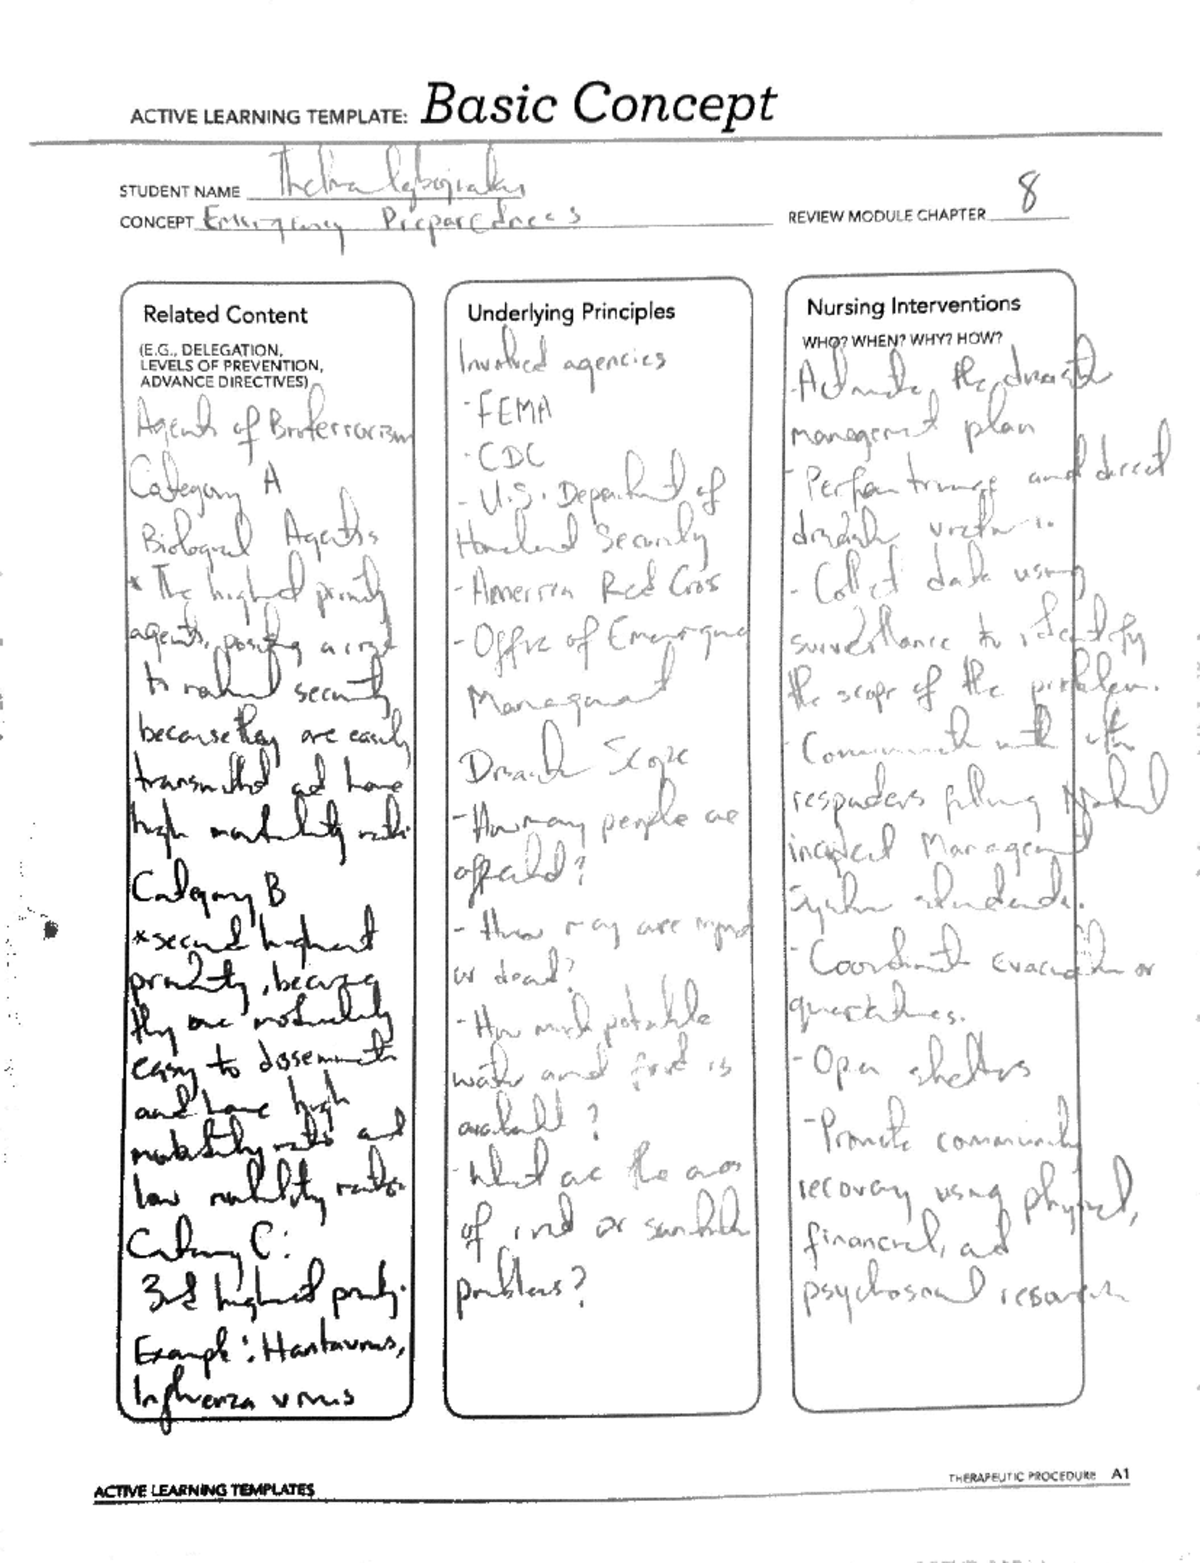 ACTIVE LEARNING TEMPLATE: Basic Concept
STUDENT NAME Thelma
CONCEPT Emergency Preparedness
REVIEW MODULE CHAPTER 8
Related Content
(E.G., DELEGATION,
LEVELS OF PREVENTION,
ADVANCE DIRECTIVES)
Agents of Bioterrorism
Category A
Biological Agents
* The highest priority
agents, posing a risk
to national security
because they are easily
transmitted and have
high mortality rates
Category B
*second highest
priority, because
they are moderately
easy to disseminate
and have high
morbidity rates and
low mortality rates
Category C:
3rd highest priority.
Example: Hantavirus,
Influenza virus
Underlying Principles
Involved agencies
- FEMA
- CDC
- U.S. Department of
Homeland Security
- American Red Cross
- Office of Emergency
Management
Disaster Scope
- How many people are
affected?
- How many are injured
or dead?
- How much potable
water and food is
available?
- What are the areas
of risk or sanitation
problems?
Nursing Interventions
WHO? WHEN? WHY? HOW?
- Activate the disaster
management plan
- Perform triage and direct
disaster victims.
- Collect data using
surveillance to identify
the scope of the problem.
- Communicate with other
responders following National
incident Management
System standards.
- Coordinate evacuation or
quarantines.
- Open shelters
- Promote community
recovery using physical,
financial, and
psychosocial resources
ACTIVE LEARNING TEMPLATES
THERAPEUTIC PROCEDURE A1